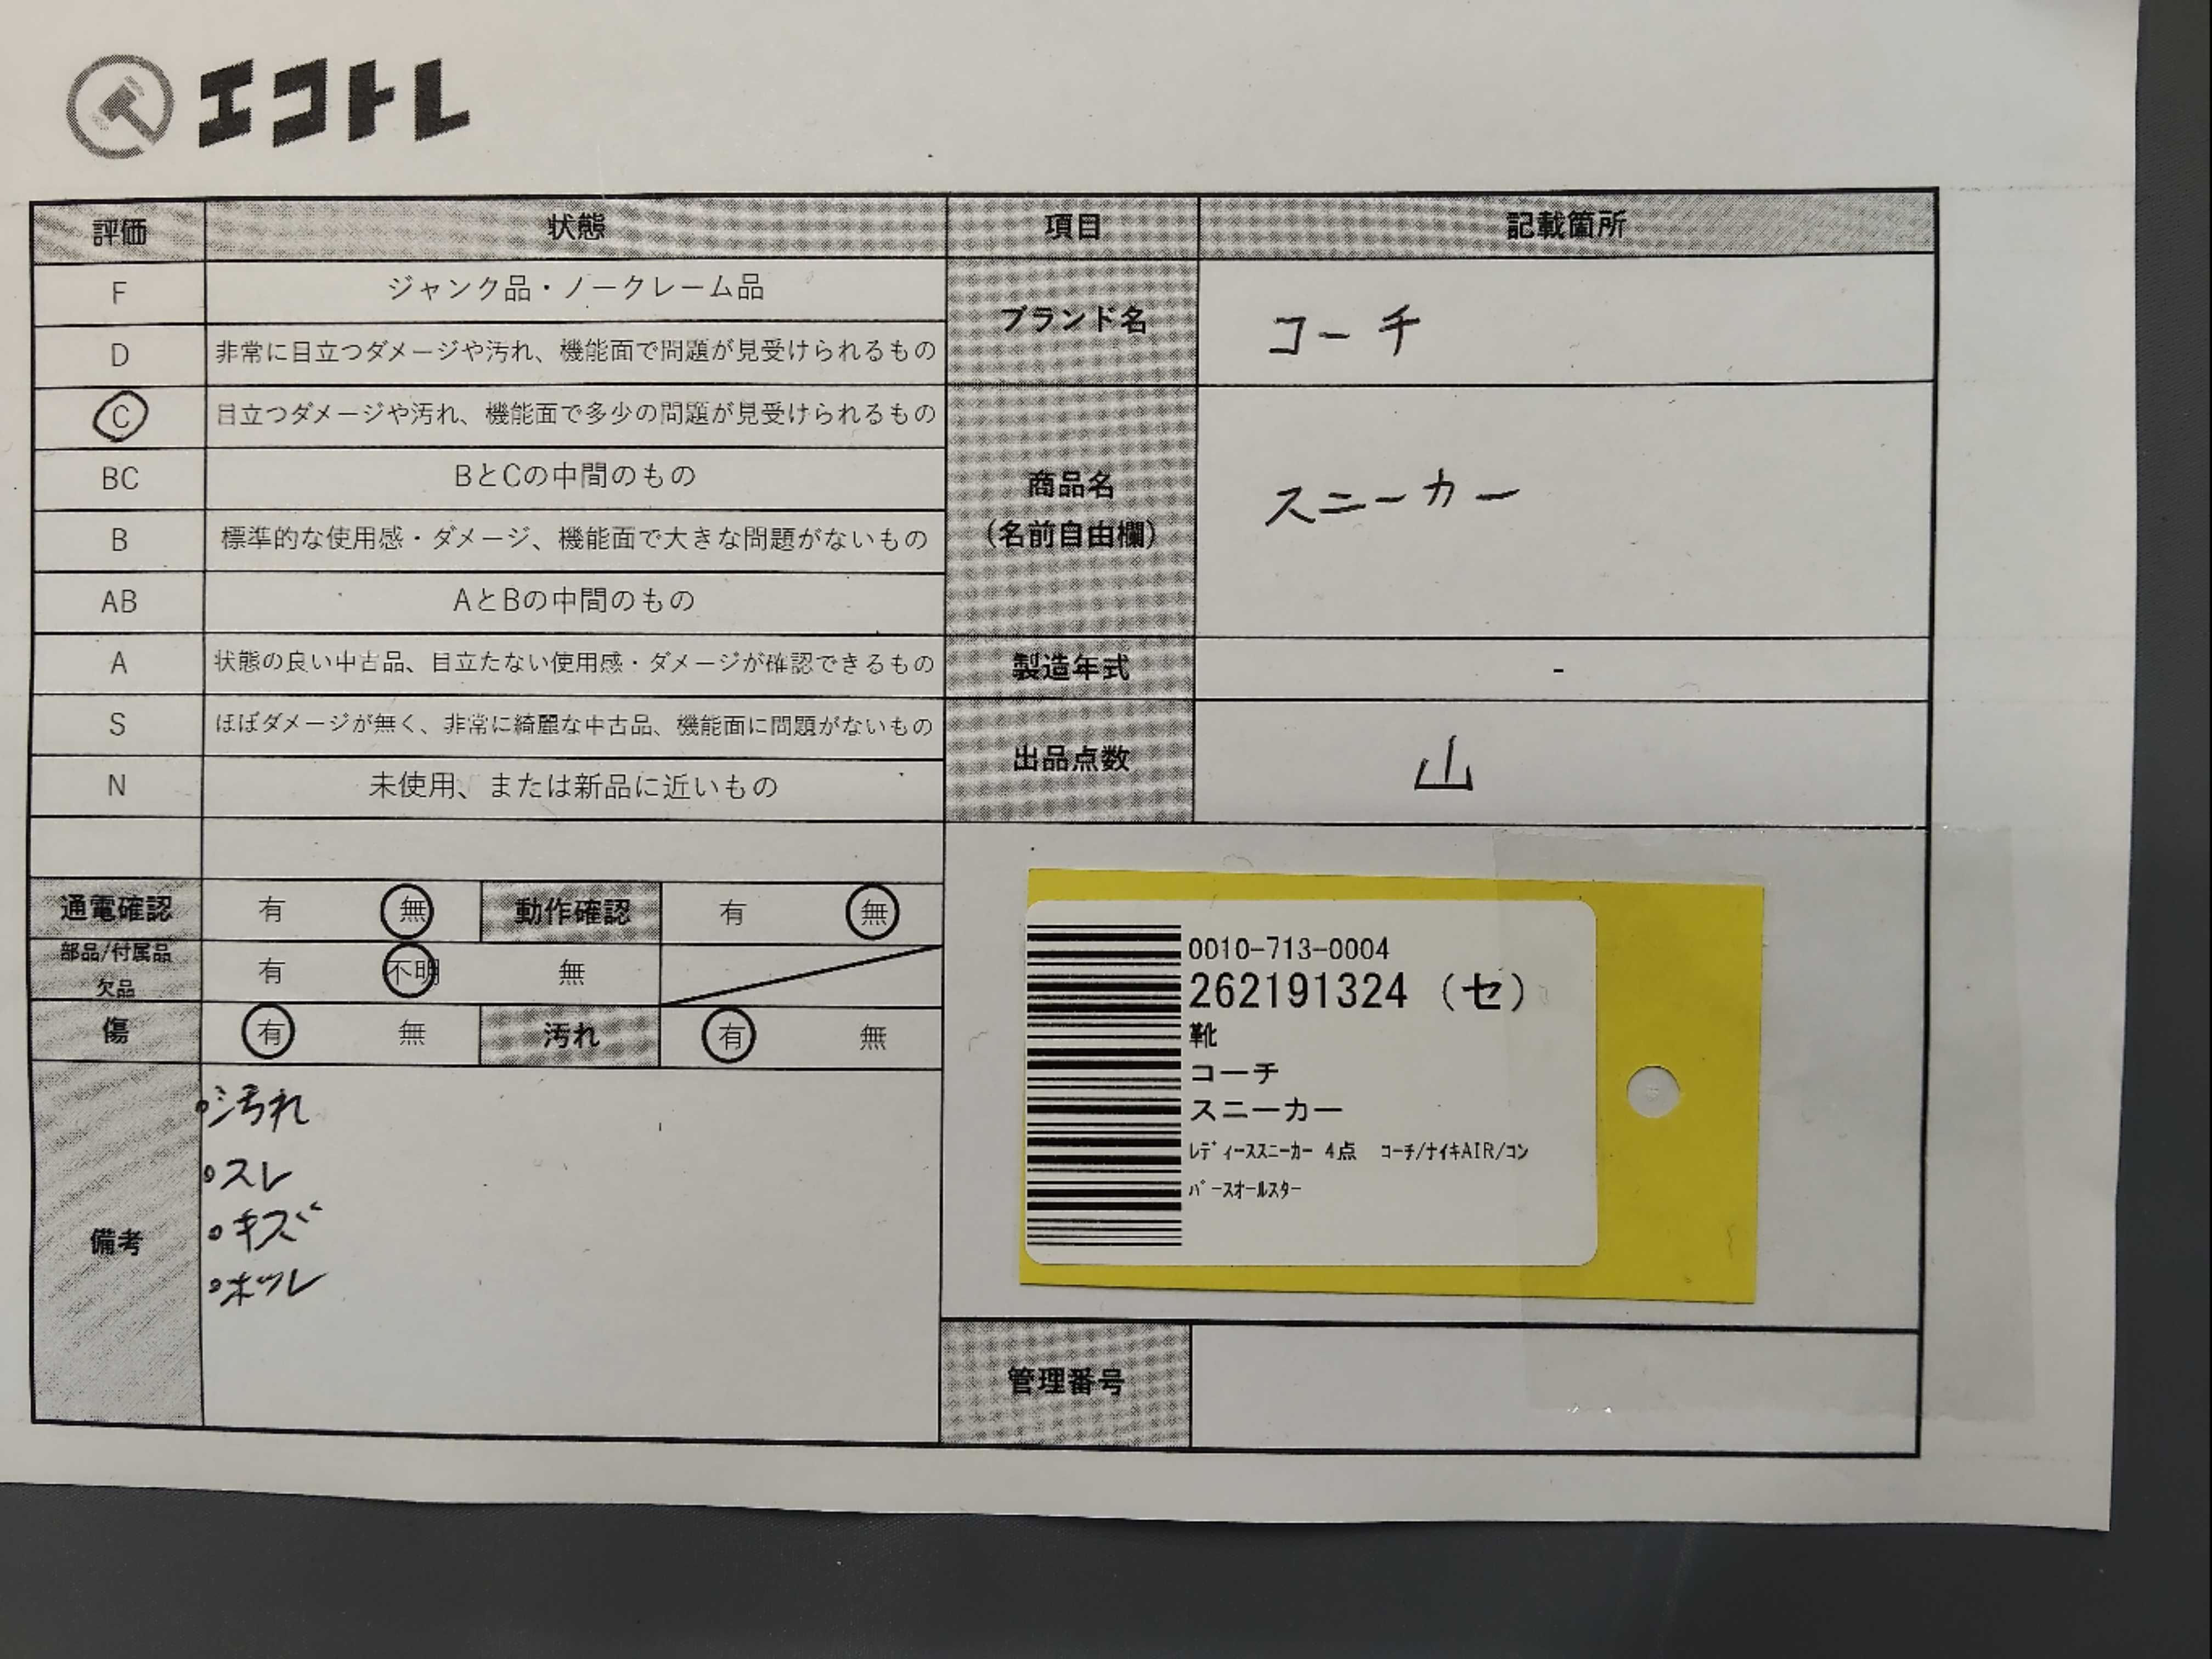 エコトレ
評価 状態 項目 記載箇所
F ジャンク品・ノークレーム品
D 非常に目立つダメージや汚れ、機能面で問題が見受けられるもの
C 目立つダメージや汚れ、機能面で多少の問題が見受けられるもの
BC BとCの中間のもの
B 標準的な使用感・ダメージ、機能面で大きな問題がないもの
AB AとBの中間のもの
A 状態の良い中古品、目立たない使用感・ダメージが確認できるもの
S ほぼダメージが無く、非常に綺麗な中古品、機能面に問題がないもの
N 未使用、または新品に近いもの
ブランド名 コーチ
商品名
(名前自由欄)
スニーカー
製造年式 -
出品点数 山
通電確認 有 無 動作確認 有 無
部品/付属品
欠品
有 不明 無
傷 有 無 汚れ 有 無
備考
汚れ
スレ
キズ
ホツレ
0010-713-0004
262191324 (セ)
靴
コーチ
スニーカー
ﾚﾃﾞｨｰｽｽﾆｰｶｰ 4点 ｺｰﾁ/ﾅｲｷAIR/ｺﾝ
ﾊﾞｰｽｵｰﾙｽﾀｰ
管理番号